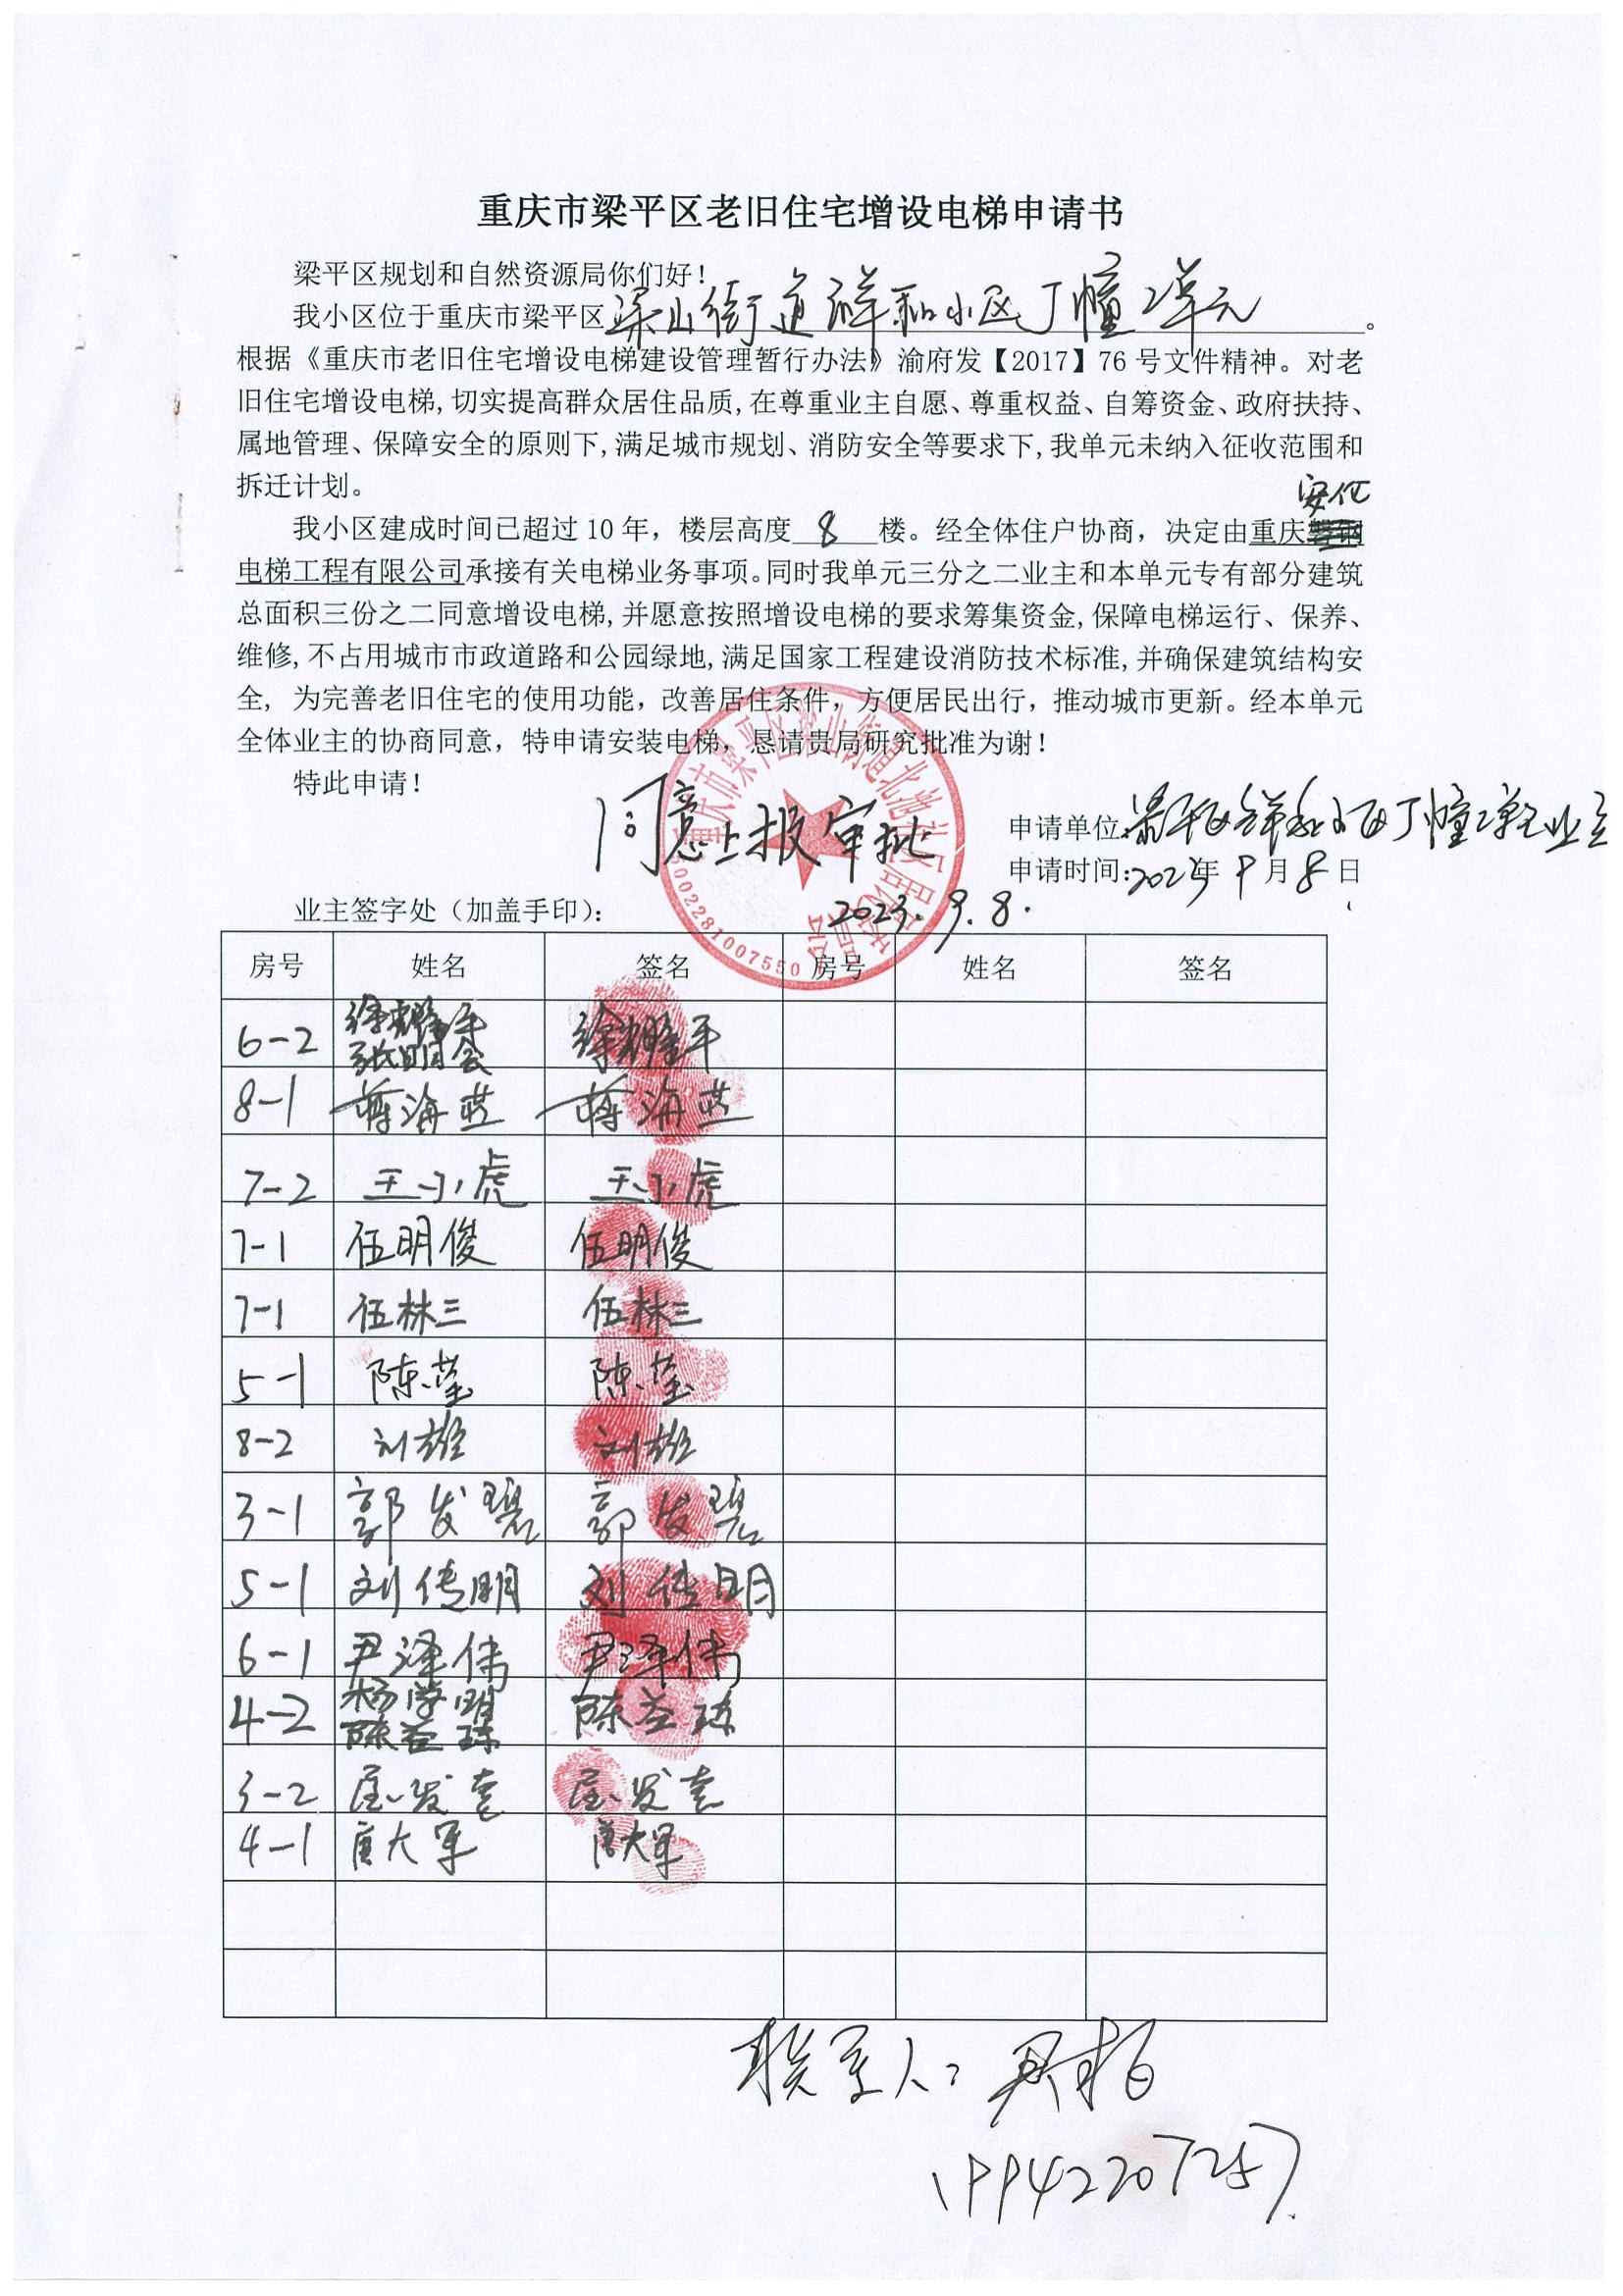 重庆市梁平区老旧住宅增设电梯申请书
梁平区规划和自然资源局你们好！
我小区位于重庆市梁平区梁山街道祥和小区丁幢2单元。
根据《重庆市老旧住宅增设电梯建设管理暂行办法》渝府发【2017】76号文件精神。对老
旧住宅增设电梯,切实提高群众居住品质,在尊重业主自愿、尊重权益、自筹资金、政府扶持、
属地管理、保障安全的原则下,满足城市规划、消防安全等要求下,我单元未纳入征收范围和
拆迁计划。
我小区建成时间已超过10年，楼层高度8楼。经全体住户协商，决定由重庆
电梯工程有限公司承接有关电梯业务事项。同时我单元三分之二业主和本单元专有部分建筑
总面积三份之二同意增设电梯,并愿意按照增设电梯的要求筹集资金,保障电梯运行、保养、
维修,不占用城市市政道路和公园绿地,满足国家工程建设消防技术标准,并确保建筑结构安
全，为完善老旧住宅的使用功能，改善居住条件，方便居民出行，推动城市更新。经本单元
全体业主的协商同意，特申请安装电梯，恳请贵局研究批准为谢！
特此申请！
同意上报审批
2023.9.8.
重庆市梁平区梁山街道北池社区居民委员会
5002281007550
申请单位:梁平区祥和小区丁幢2单元业主
申请时间:2023年9月8日
业主签字处（加盖手印）：
房号 姓名 签名 房号 姓名 签名
6-2 徐耀平 张明会 徐耀平
8-1 蒋海燕 蒋海燕
7-2 王小虎 王小虎
7-1 伍明俊 伍明俊
7-1 伍林三 伍林三
5-1 陈莹 陈莹
8-2 刘雄 刘雄
3-1 郭发碧 郭发碧
5-1 刘传明 刘传明
6-1 尹泽伟 尹泽伟
4-2 杨学明 陈益琼 陈益琼
3-2 屈发奎 屈发奎
4-1 唐大军 唐大军
联系人:
19942207257